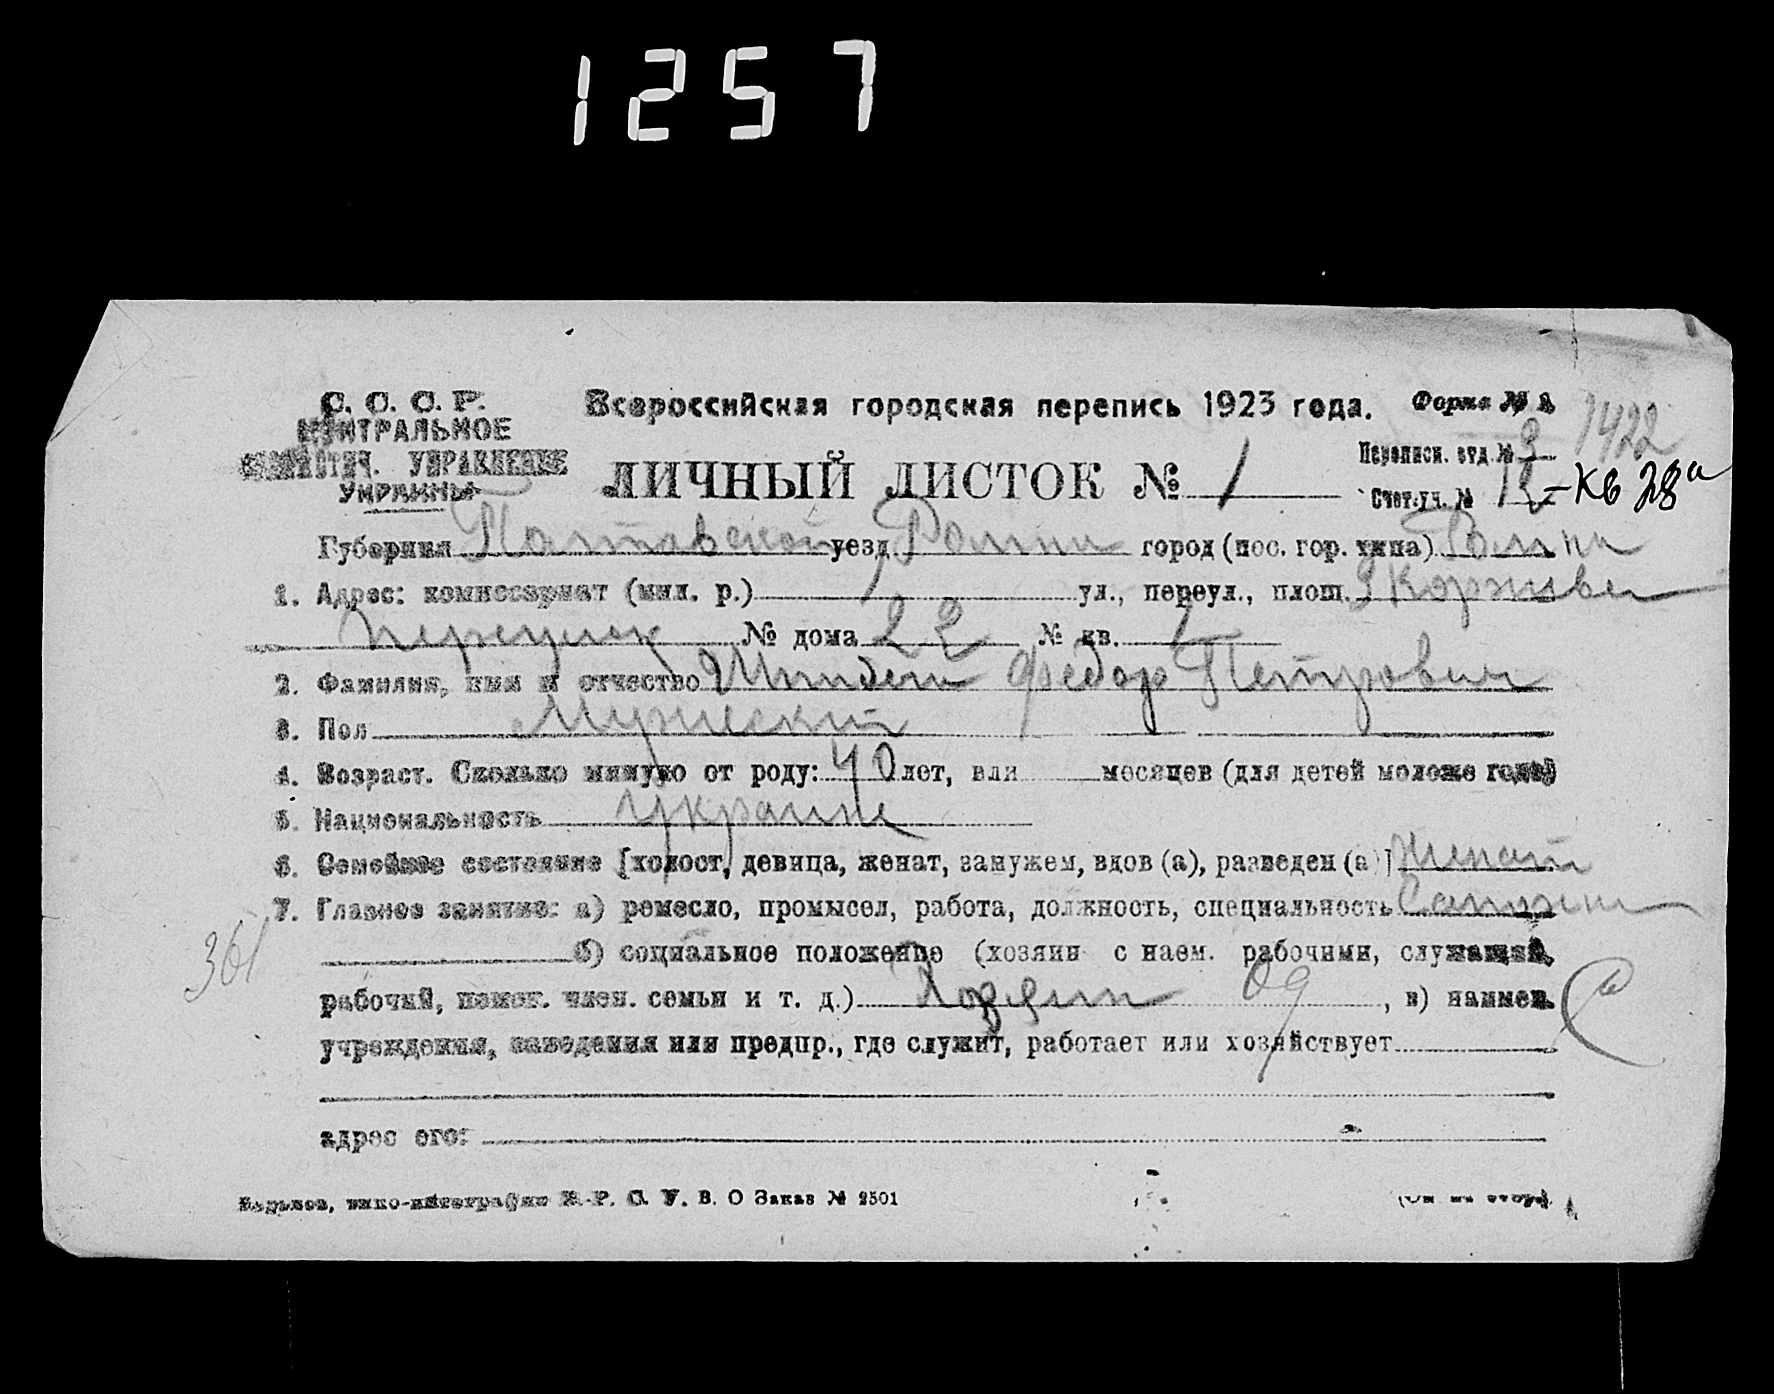 1257
С. С. С. Р. Всероссийская городская перепись 1923 года. Форма № 2.
ЦЕНТРАЛЬНОЕ 1422
СТАТИСТИЧ. УПРАВЛЕНИЕ ЛИЧНЫЙ ЛИСТОК № 1 Переписн. отд. № 3
УКРАИНЫ Счет.уч. № 12 -кв 28а
Губерния Полтавской уезд Ромни город (пос. гор. типа) Ромни
1. Адрес: комиссариат (мил. р.) ул., переул., площ.
переулок № дома 22 № кв.
2. Фамилия, имя и отчество Федор Петрович
3. Пол Мужеский
4. Возраст. Сколько минуло от роду: 40 лет, или месяцев (для детей моложе года)
5. Национальность Украине
6. Семейное состояние [холост, девица, женат, замужем, вдов (а), разведен (а)] Женат
7. Главное занятие: а) ремесло, промысел, работа, должность, специальность
361 б) социальное положение (хозяин с наем. рабочими, служащий,
рабочий, помог. член. семьи и т. д.) , в) наимен.
учреждения, заведения или предпр., где служит, работает или хозяйствует
адрес его:
Харьков, типо-литография У. В. О Заказ № 2501